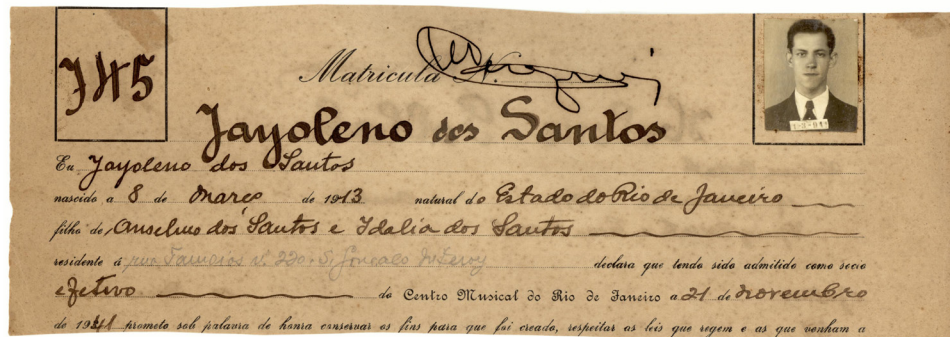 745
Matricula N.
Jayoleno dos Santos
Eu Jayoleno dos Santos
nascido a 8 de Março de 1913 natural do Estado do Rio de Janeiro
filho de Anselmo dos Santos e Idalia dos Santos
residente á rua 220 S. Gonçalo declara que tendo sido admitido como socio
efetivo do Centro Musical do Rio de Janeiro a 21 de novembro
de 1941 prometo sob palavra de honra conservar os fins para que foi creado, respeitar as leis que regem e as que venham a